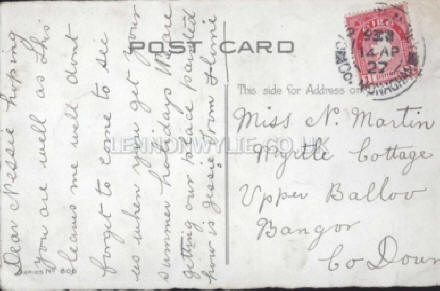 POST CARD
Dear Nessie hoping
you are well as this
leaves me well dont
forget to come to see
us when you get your
summer holidays We are
getting our place painted
how is Jessie from
This side for Address on
Miss N. Martin
Myrtle Cottage
Upper Balloo
Bangor
Co Down
12 AP
27
LENNONWYLIE.CO.UK